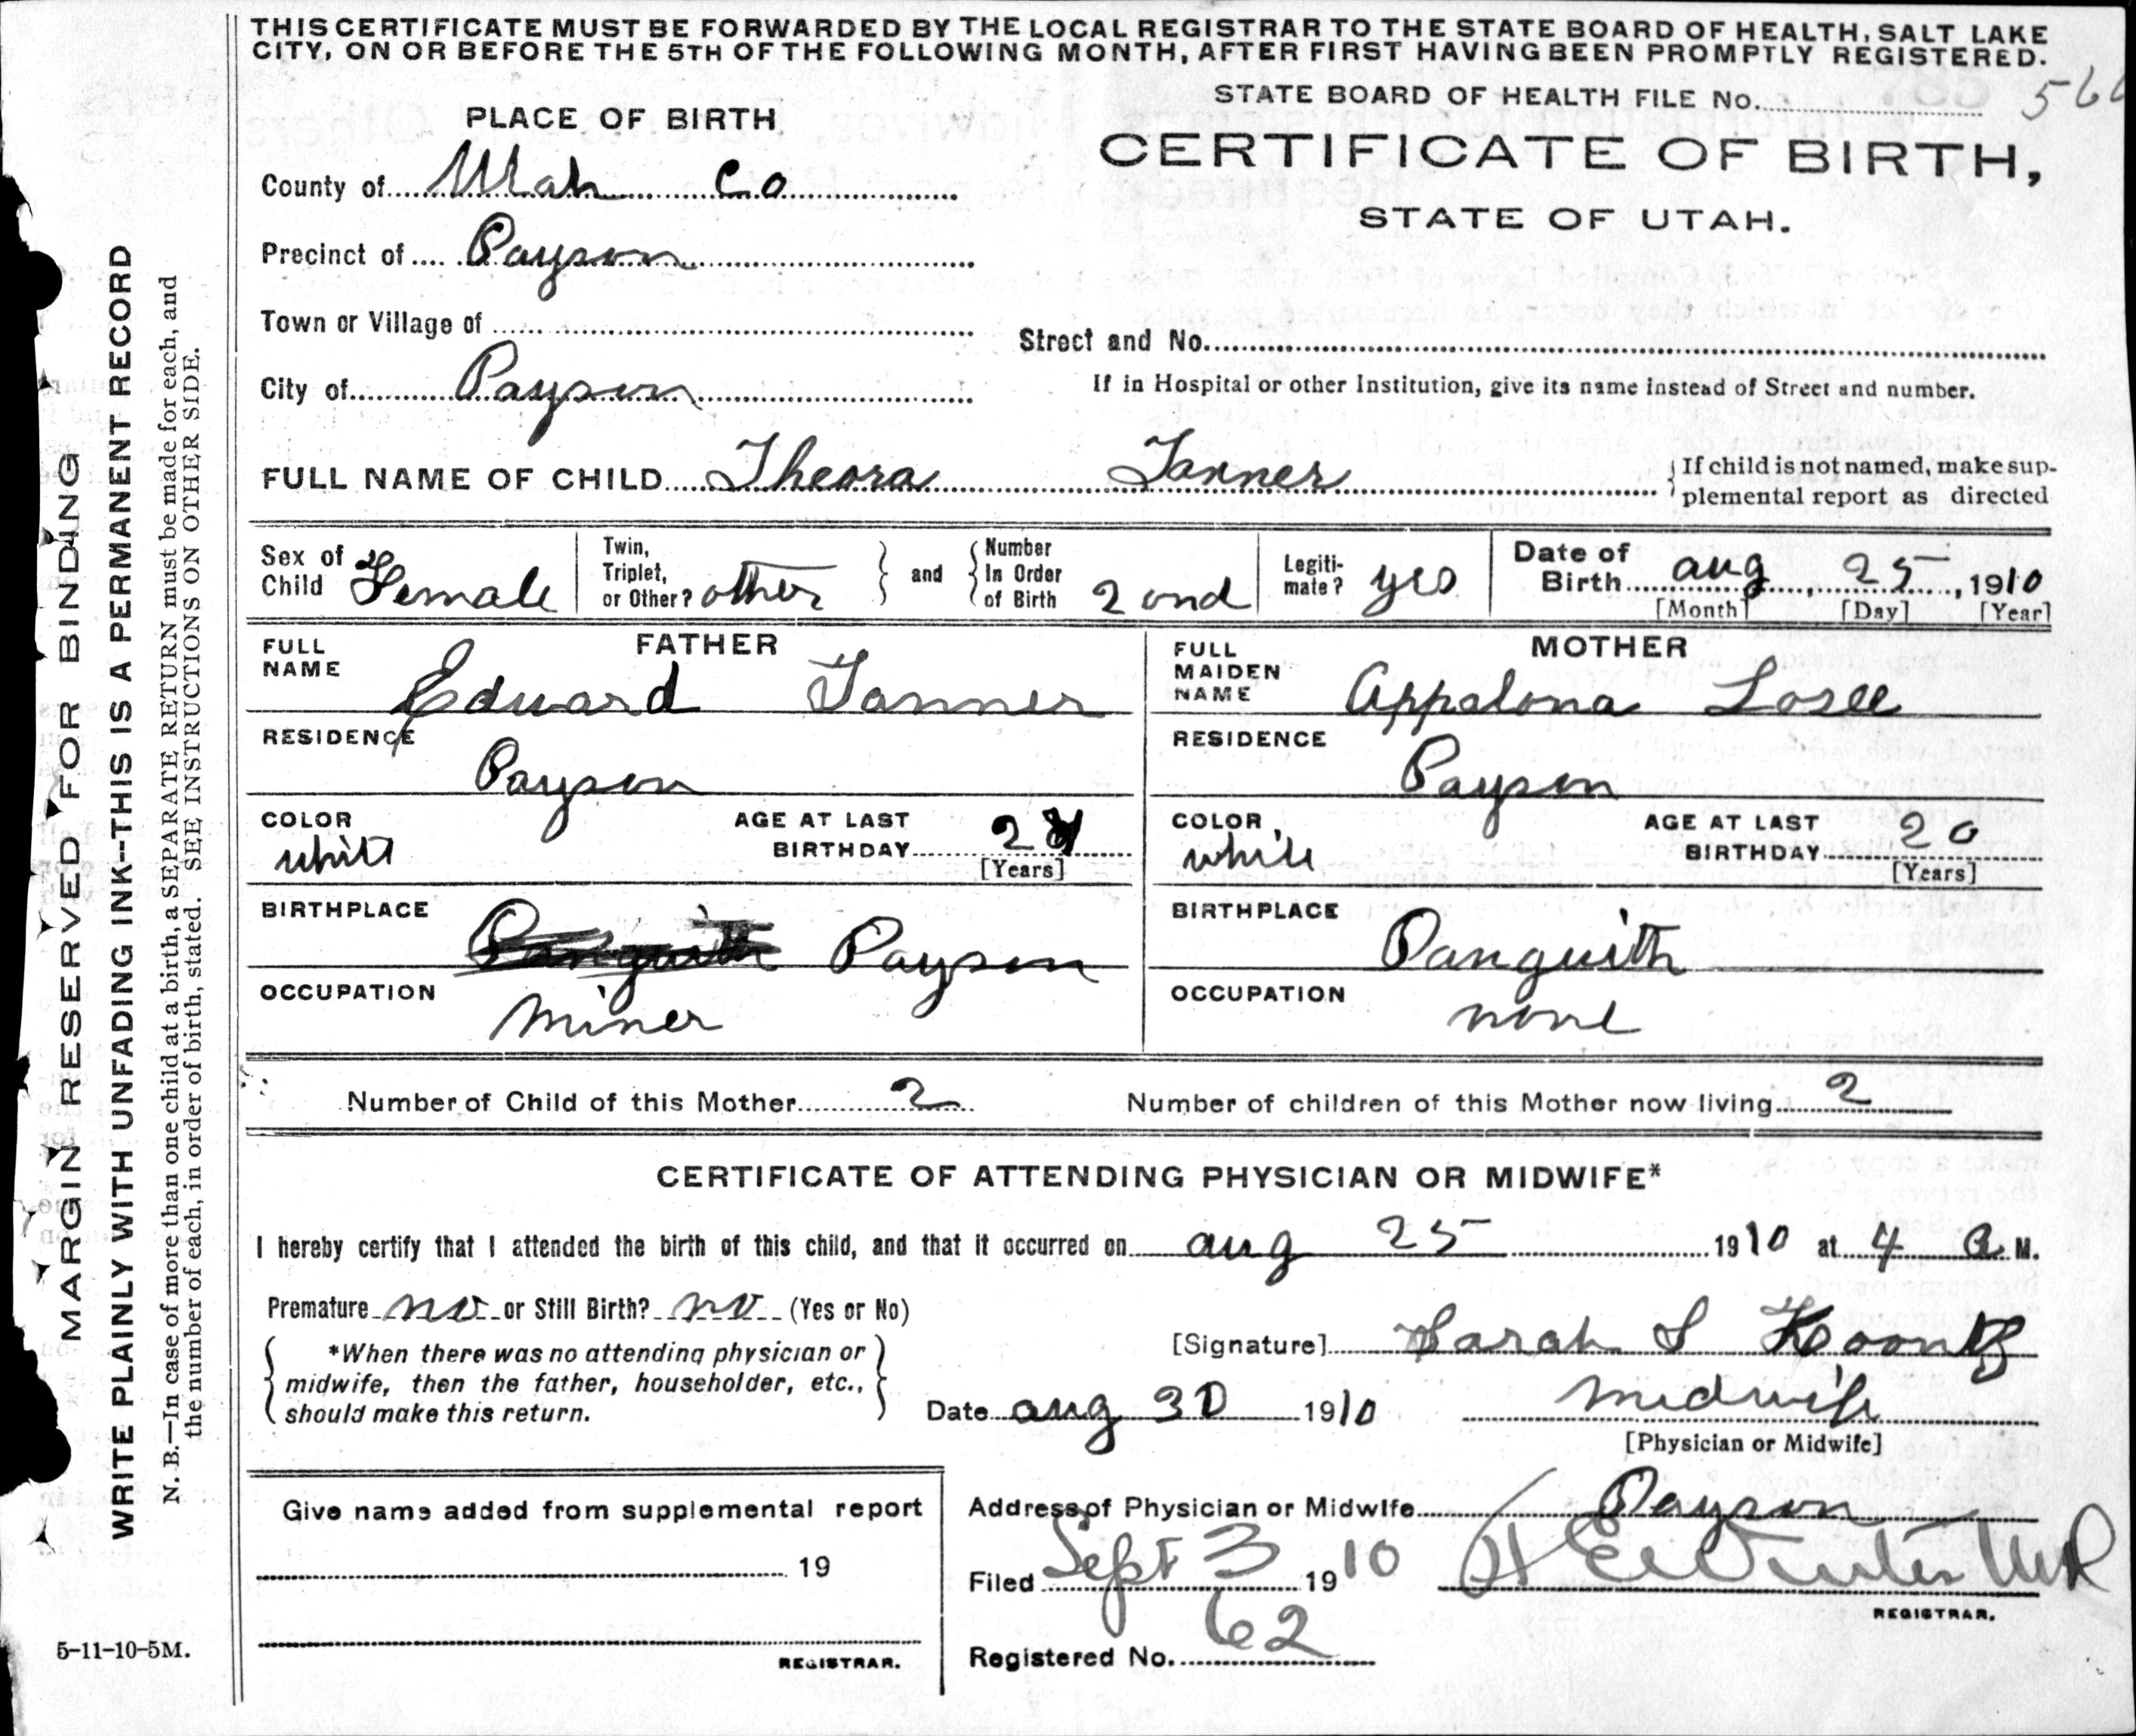 THIS CERTIFICATE MUST BE FORWARDED BY THE LOCAL REGISTRAR TO THE STATE BOARD OF HEALTH, SALT LAKE
CITY, ON OR BEFORE THE 5TH OF THE FOLLOWING MONTH, AFTER FIRST HAVING BEEN PROMPTLY REGISTERED.
STATE BOARD OF HEALTH FILE No.
PLACE OF BIRTH
CERTIFICATE OF BIRTH,
STATE OF UTAH.
County of Utah Co
Precinct of Payson
Town or Village of
Street and No.
City of Payson
If in Hospital or other Institution, give its name instead of Street and number.
FULL NAME OF CHILD Theora Tanner
If child is not named, make sup-
plemental report as directed
Sex of Child Female
Twin, Triplet, or Other? other and Number In Order of Birth 2 ond
Legiti-mate? yes
Date of Birth aug 25, 1910
[Month] [Day] [Year]
FATHER
FULL NAME Edward Tanner
RESIDENCE Payson
COLOR white AGE AT LAST BIRTHDAY
[Years]
BIRTHPLACE Panguith Payson
OCCUPATION miner
MOTHER
FULL MAIDEN NAME Appalona Losee
RESIDENCE Payson
COLOR white AGE AT LAST BIRTHDAY 20
[Years]
BIRTHPLACE Panguith
OCCUPATION none
Number of Child of this Mother 2 Number of children of this Mother now living 2
CERTIFICATE OF ATTENDING PHYSICIAN OR MIDWIFE*
I hereby certify that I attended the birth of this child, and that it occurred on aug 25 1910 at 4 a M.
Premature no or Still Birth? no (Yes or No)
*When there was no attending physician or
midwife, then the father, householder, etc.,
should make this return.
[Signature] Sarah S Koontz
Date aug 30 1910 midwife
[Physician or Midwife]
Give name added from supplemental report
19
REGISTRAR.
Address of Physician or Midwife Payson
Filed Sept 3 1910
REGISTRAR.
Registered No. 62
MARGIN RESERVED FOR BINDING
WRITE PLAINLY WITH UNFADING INK--THIS IS A PERMANENT RECORD
N. B.—In case of more than one child at a birth, a SEPARATE RETURN must be made for each, and
the number of each, in order of birth, stated. SEE INSTRUCTIONS ON OTHER SIDE.
5-11-10-5M.